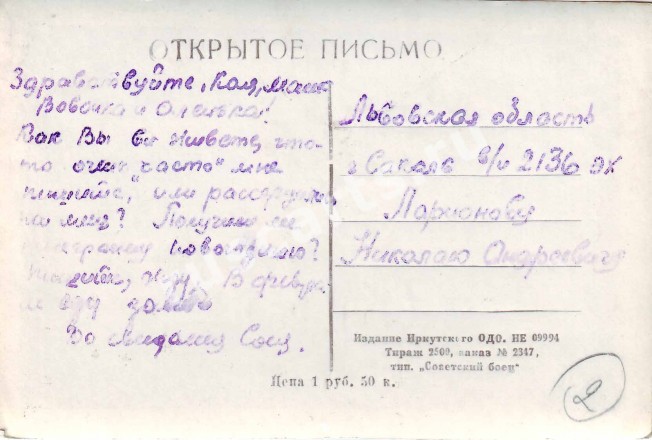 ОТКРЫТОЕ ПИСЬМО
Здравствуйте, Коля, Маша
Вовочка и Оленька!
Как Вы живете, что-
то очень "часто" мне
пишите, или рассердились
на меня? Получили ли
новогоднюю?
Пишите, жду. В февра-
ле еду домой
До свидания Соня.
Львовская область
г Сокаль в/ч 2136 эк
Ларионову
Николаю Андреевичу
Издание Иркутского ОДО. НЕ 09994
Тираж 2500, заказ № 2347,
тип. „Советский боец"
Цена 1 руб. 50 к.
2